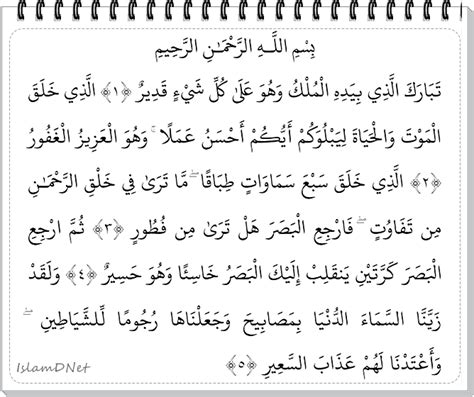 بِسْمِ اللَّـهِ الرَّحْمَـٰنِ الرَّحِيمِ
تَبَارَكَ الَّذِي بِيَدِهِ الْمُلْكُ وَهُوَ عَلَىٰ كُلِّ شَيْءٍ قَدِيرٌ ﴿١﴾ الَّذِي خَلَقَ
الْمَوْتَ وَالْحَيَاةَ لِيَبْلُوَكُمْ أَيُّكُمْ أَحْسَنُ عَمَلًا ۚ وَهُوَ الْعَزِيزُ الْغَفُورُ
﴿٢﴾ الَّذِي خَلَقَ سَبْعَ سَمَاوَاتٍ طِبَاقًا ۖ مَّا تَرَىٰ فِي خَلْقِ الرَّحْمَـٰنِ
مِن تَفَاوُتٍ ۖ فَارْجِعِ الْبَصَرَ هَلْ تَرَىٰ مِن فُطُورٍ ﴿٣﴾ ثُمَّ ارْجِعِ
الْبَصَرَ كَرَّتَيْنِ يَنقَلِبْ إِلَيْكَ الْبَصَرُ خَاسِئًا وَهُوَ حَسِيرٌ ﴿٤﴾ وَلَقَدْ
زَيَّنَّا السَّمَاءَ الدُّنْيَا بِمَصَابِيحَ وَجَعَلْنَاهَا رُجُومًا لِّلشَّيَاطِينِ ۖ
وَأَعْتَدْنَا لَهُمْ عَذَابَ السَّعِيرِ ﴿٥﴾
IslamDNet